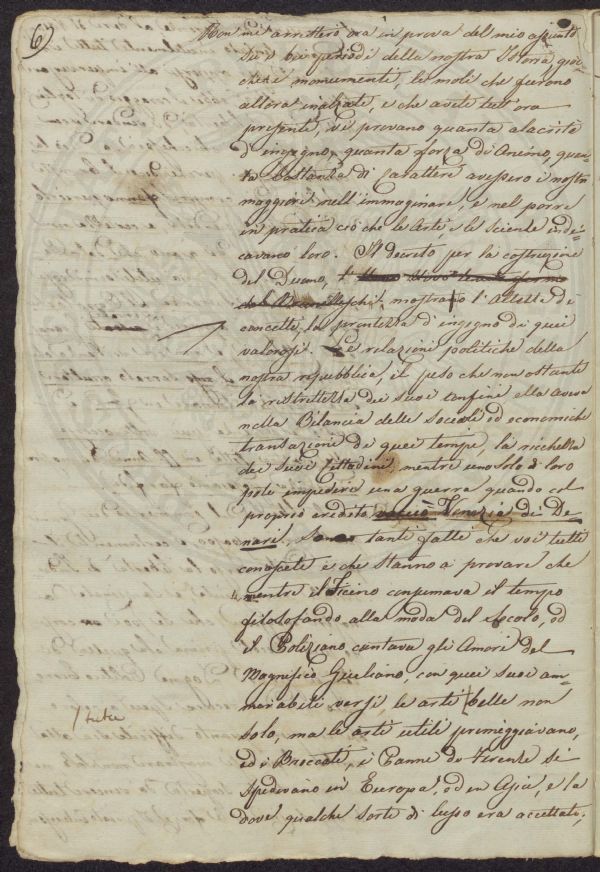 6)
Non mi arresterò ora in prova del mio assunto
su i bei periodi della nostra Istoria giac-
chè i monumenti, le moli che furono
allora inalzate, e che avete tutt'ora
presenti, vi provano quanta alacrità
d'ingegno, quanta forza di Animo, quan-
ta costanza di Carattere avessero i nostri
maggiori nell'immaginare, e nel porre
in pratica ciò che le Arti e le Scienze indi-
cavano loro. Il decreto per la costruzione
del Duomo, l'
mostra l'Altezza di
concetti, la prontezza d'ingegno di quei
valorosi. Le relazioni politiche della
nostra repubblica, il peso che non ostante
la ristrettezza dei suoi confini ella aveva
nella Bilancia delle sociali ed economiche
transazioni di quei tempi, la ricchezza
dei suoi Cittadini, mentre uno solo di loro
potè impedire una guerra quando col
proprio credito vuotò Venezia di De-
nari. Sono tanti fatti che voi tutti
conoscete e che stanno a provare che
mentre il Ficino consumava il tempo
filosofando alla moda del Secolo, ed
il Poliziano cantava gli Amori del
Magnifico Giuliano, con quei suoi am-
mirabili versi, le arti belle non
solo, ma le arti utili primeggiavano,
ed i Broccati, i Panni di Firenze si
spedivano in Europa, ed in Asia, e la
dove qualche sorte di lusso era accettato,